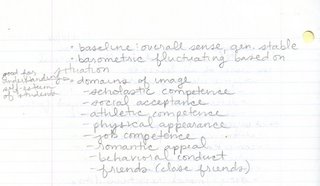 • baseline: overall sense, gen. stable
• barometric fluctuating based on
situation
good for
understanding
self-esteem
of students
• domains of image
- scholastic competence
- social acceptance
- athletic competence
- physical appearance
- job competence
- romantic appeal
- behavioral conduct
- friends (close friends)